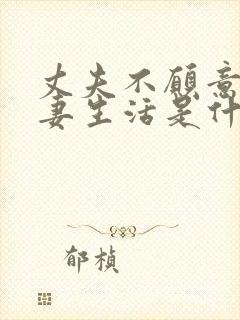 丈夫不愿意
妻生活是什
郁桢